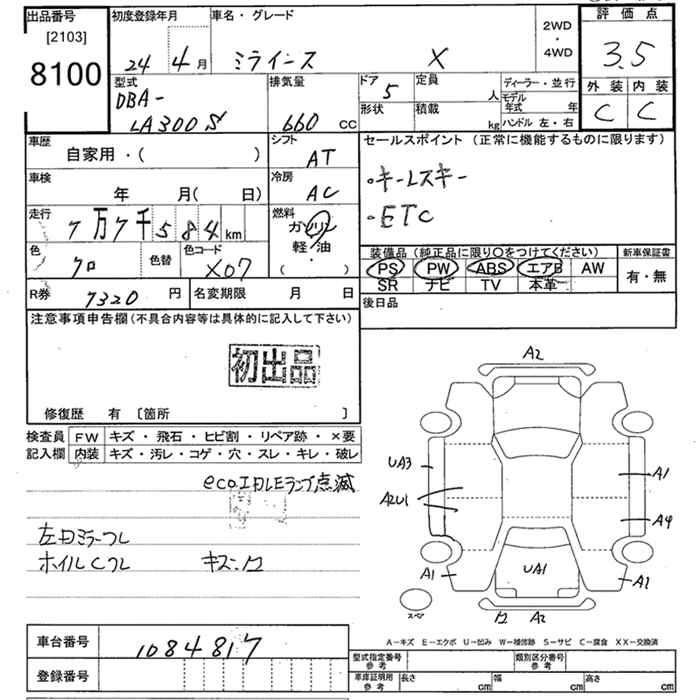 出品番号
[2103]
8100
初度登録年月
24年4月
車名・グレード
ミライース X
2WD
・
4WD
評価点
3.5
外装 内装
C C
型式
DBA-
LA300S
排気量
660 CC
ドア 5
定員 人
ディーラー・並行
形状
積載 kg
モデル年式 年
ハンドル 左・右
車歴
自家用・( )
シフト
AT
セールスポイント (正常に機能するものに限ります)
・キーレスキー
・ETC
車検
年 月(日)
冷房
AC
走行
7万7千584km
燃料
ガソリン
軽・油
( ・ )
色
クロ
色替
色コード
X07
装備品(純正品に限り○をつけてください)
PS PW ABS エアB AW
SR ナビ TV 本革
新車保証書
有・無
R券 7320円
名変期限 月 日
後日品
注意事項申告欄(不具合内容等は具体的に記入して下さい)
初出品
修復歴 有 [箇所 ]
検査員 FW キズ・飛石・ヒビ割・リペア跡・×要
記入欄 内装 キズ・汚レ・コゲ・穴・スレ・キレ・破レ
ecoIDLEランプ点滅
左ドミラーフレ
ホイルCフレ キズ・凹
A2
UA3
A1
A2U1
A4
A1
UA1
A1
スペア
凹 A2
A-キズ E-エクボ U-凹み W-補修跡 S-サビ C-腐食 XX-交換済
車台番号 1084817
登録番号
型式指定番号 参考
類別区分番号 参考
車庫証明用 参考
長さ cm
幅 cm
高さ cm